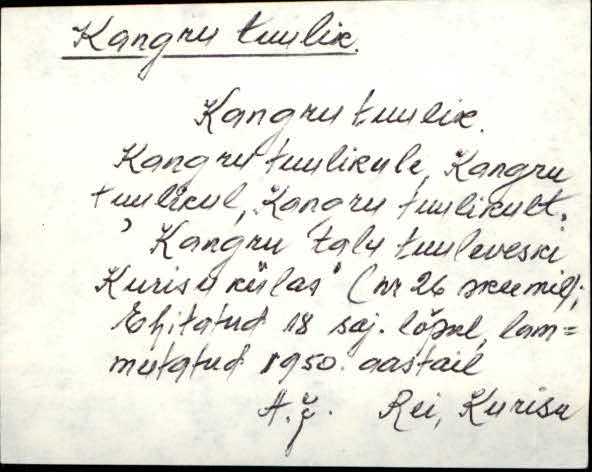 Kangru tuulik.
Kangru tuulik.
Kangru tuulikule, Kangru
tuulikul, Kangru tuulikult.
, Kangru talu tuuleveski
Kurisu külas" (nr 26 skeemil);
Ehitatud 18 saj. lõpul, lam=
mutatud 1950. aastail
A. J. Rei, Kurisu